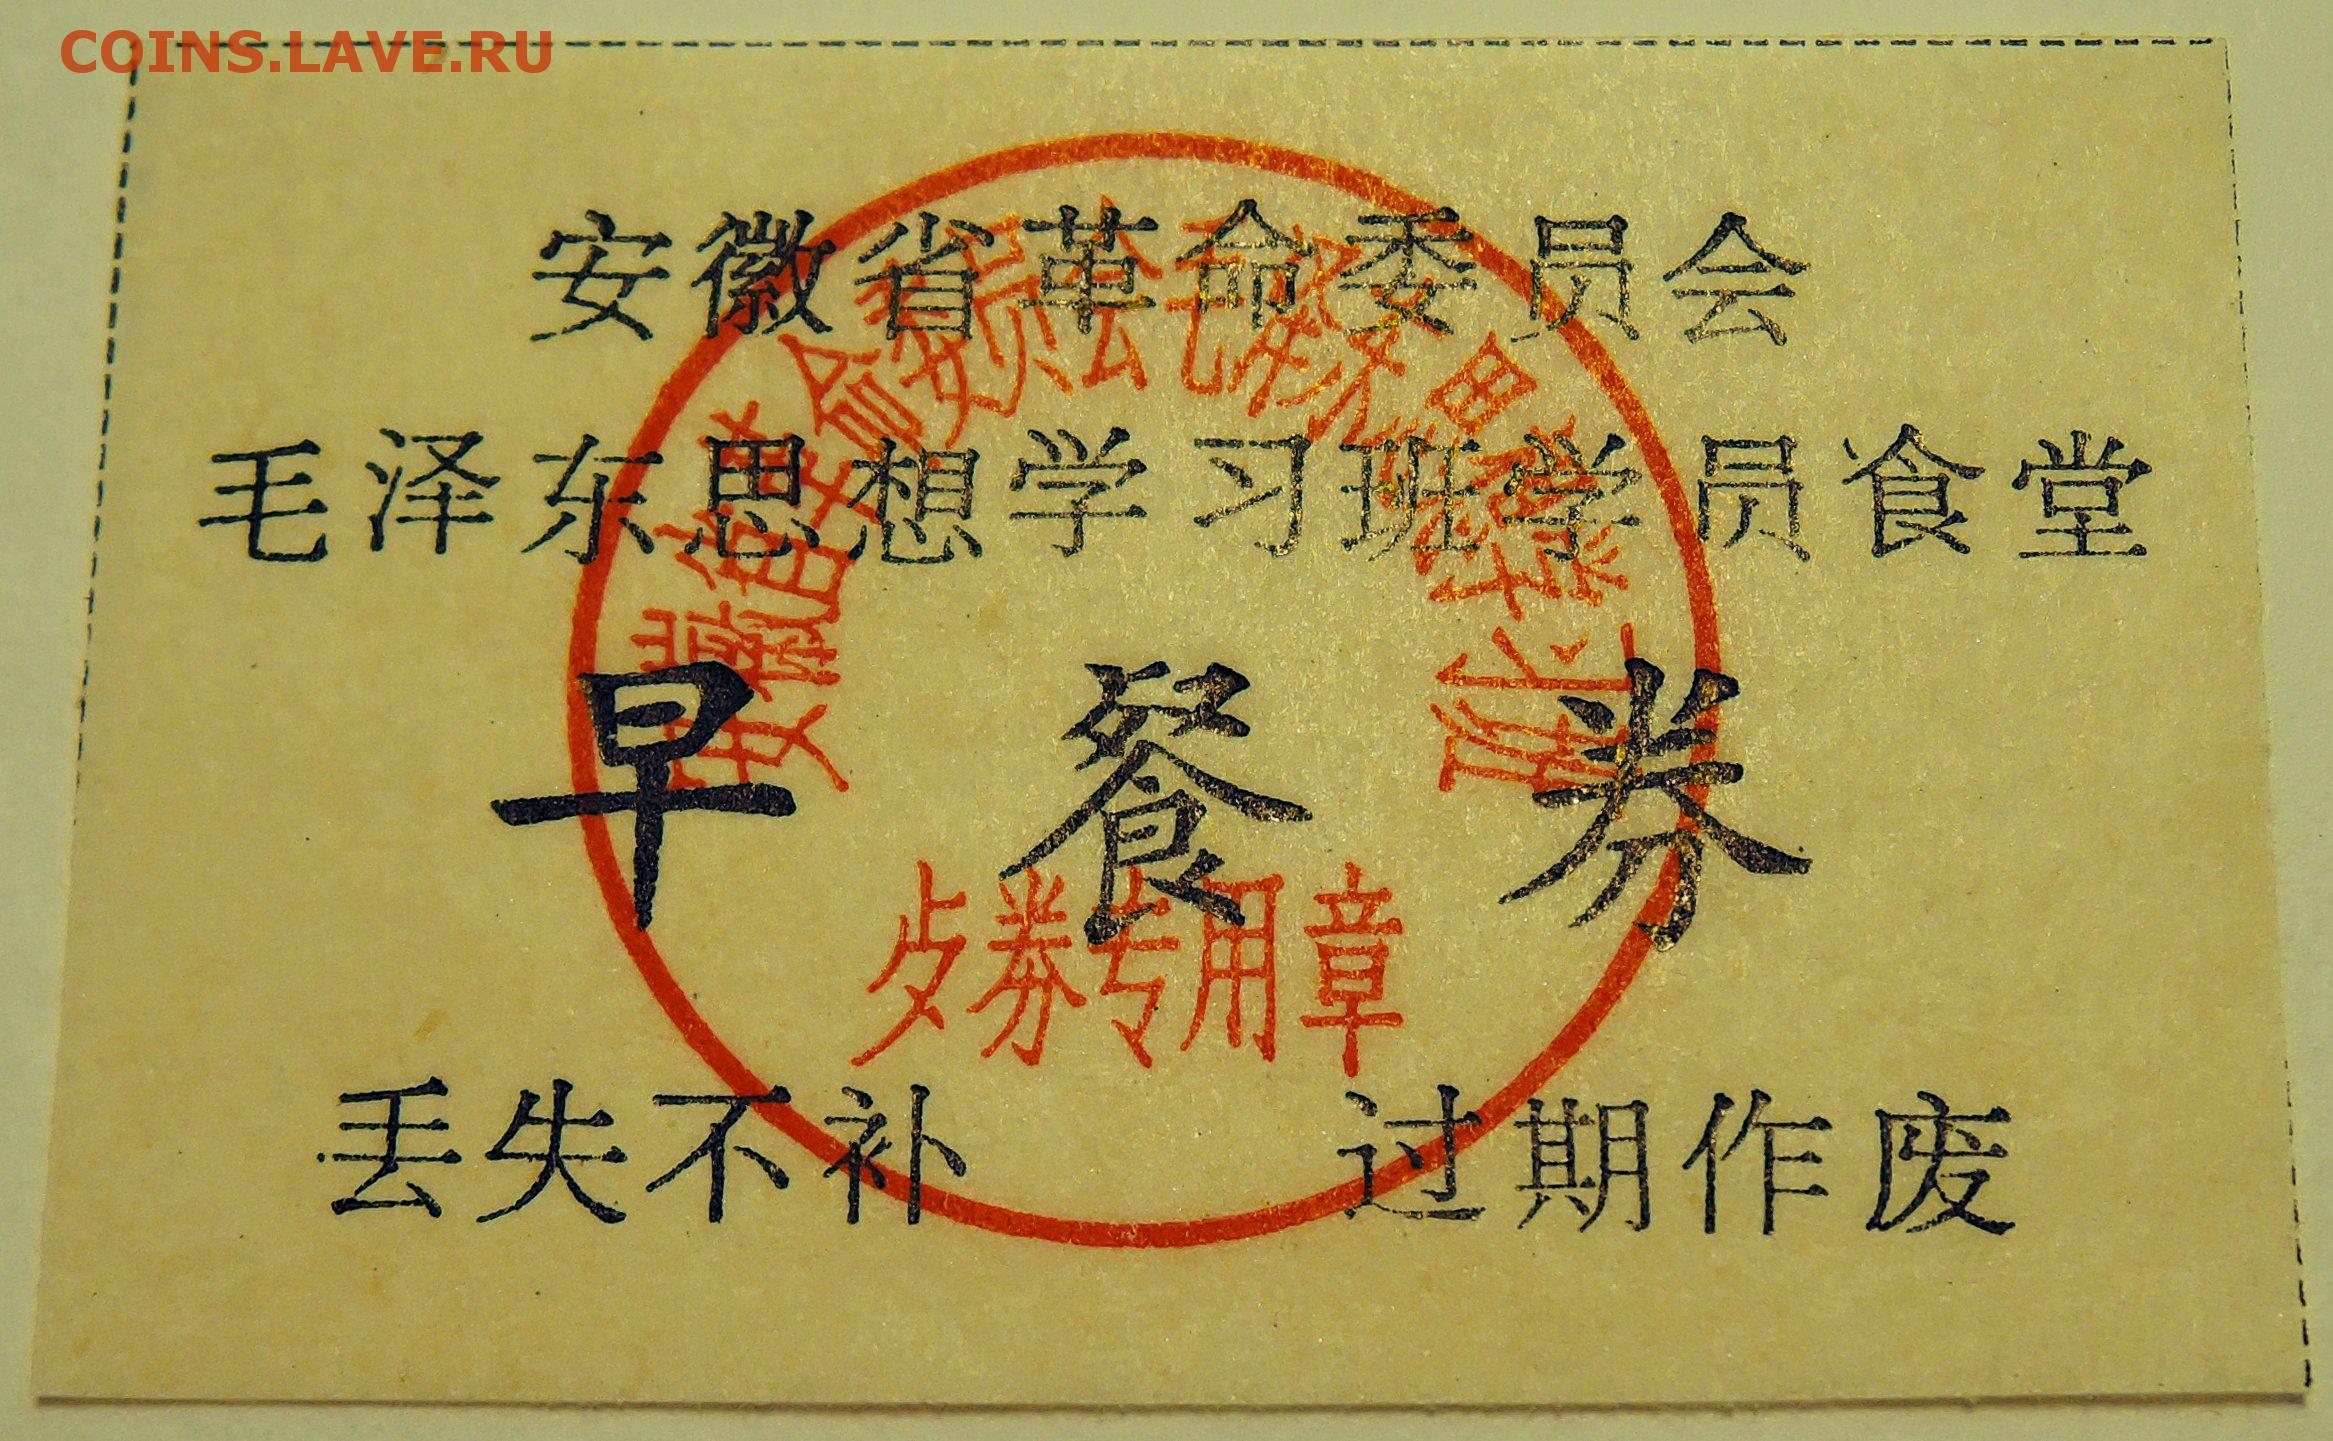 COINS.LAVE.RU
安徽省革命委员会
毛泽东思想学习班学员食堂
早餐券
歺券专用章
丢失不补 过期作废